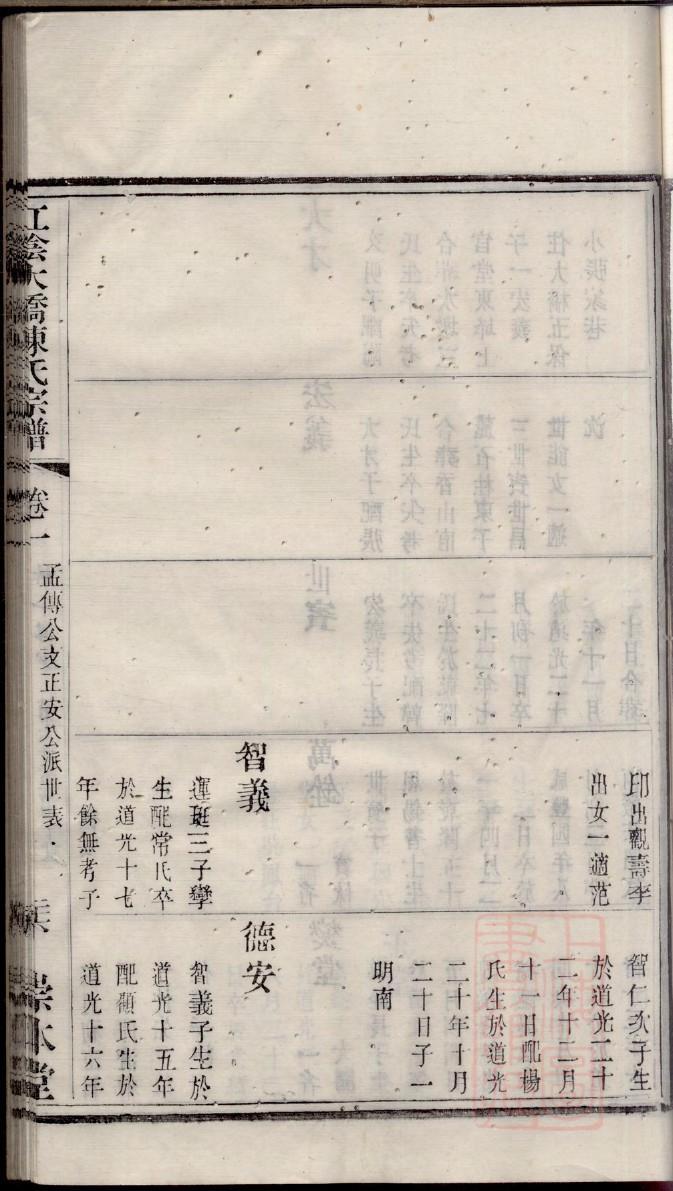 印出觀壽李
出女一適范
智義
運珽三子孿
生配常氏卒
於道光十七
年餘無考子
智仁次子生
於道光二十
二年十二月
十一日配楊
氏生於道光
二十年十月
二十日子一
明南
德安
智義子生於
道光十五年
配顧氏生於
道光十六年
江陰大橋陳氏宗譜
卷一
孟傳公支正安公派世表
崇本堂